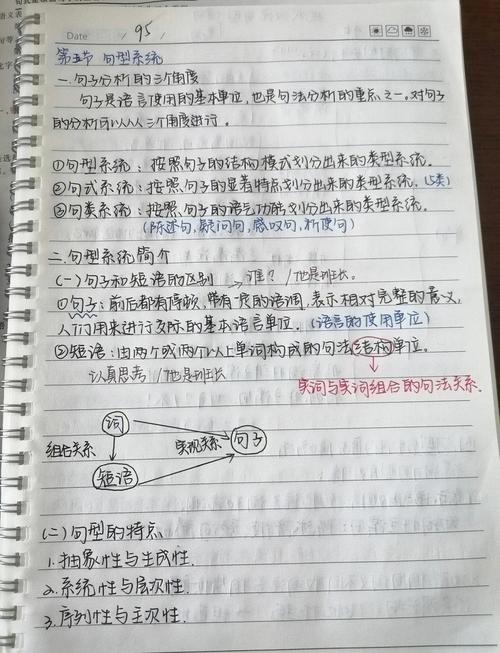 Date 95
第五节 句型系统
一.句子分析的三个角度
句子是语言使用的基本单位,也是句法分析的重点之一。对句子
的分析可以从三个角度进行。
①句型系统:按照句子的结构模式划分出来的类型系统。
②句式系统:按照句子的显著特点划分出来的类型系统。(5类)
③句类系统:按照句子的语气功能划分出来的类型系统。
(陈述句,疑问句,感叹句,祈使句)
二.句型系统简介
(一)句子和短语的区别 → 谁? / 他是班长。
①句子:前后都有停顿,带有一定的语调,表示相对完整的意义,
人们用来进行交际的基本语言单位。(语言的使用单位)
②短语:由两个或两个以上单词构成的句法结构单位。
认真思考 / 他是班长
实词与实词组合的句法关系.
词
组合关系 实现关系 句子
短语
(二)句型的特点
1.抽象性与生成性.
2.系统性与层次性.
3.序列性与主次性.